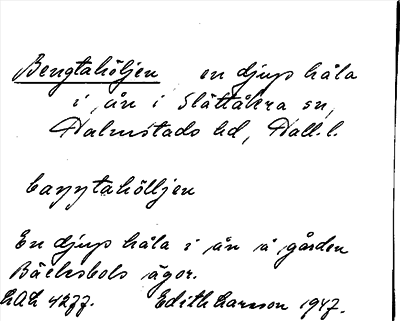 Bengtahöljen en djup håla
i ån i Slättåkra sn,
Halmstads hd, Hall. l.
bayytahölljen
En djup håla i ån å gården
Bäcksbols ägor.
LAL 4277. Edith Larsson 1947.